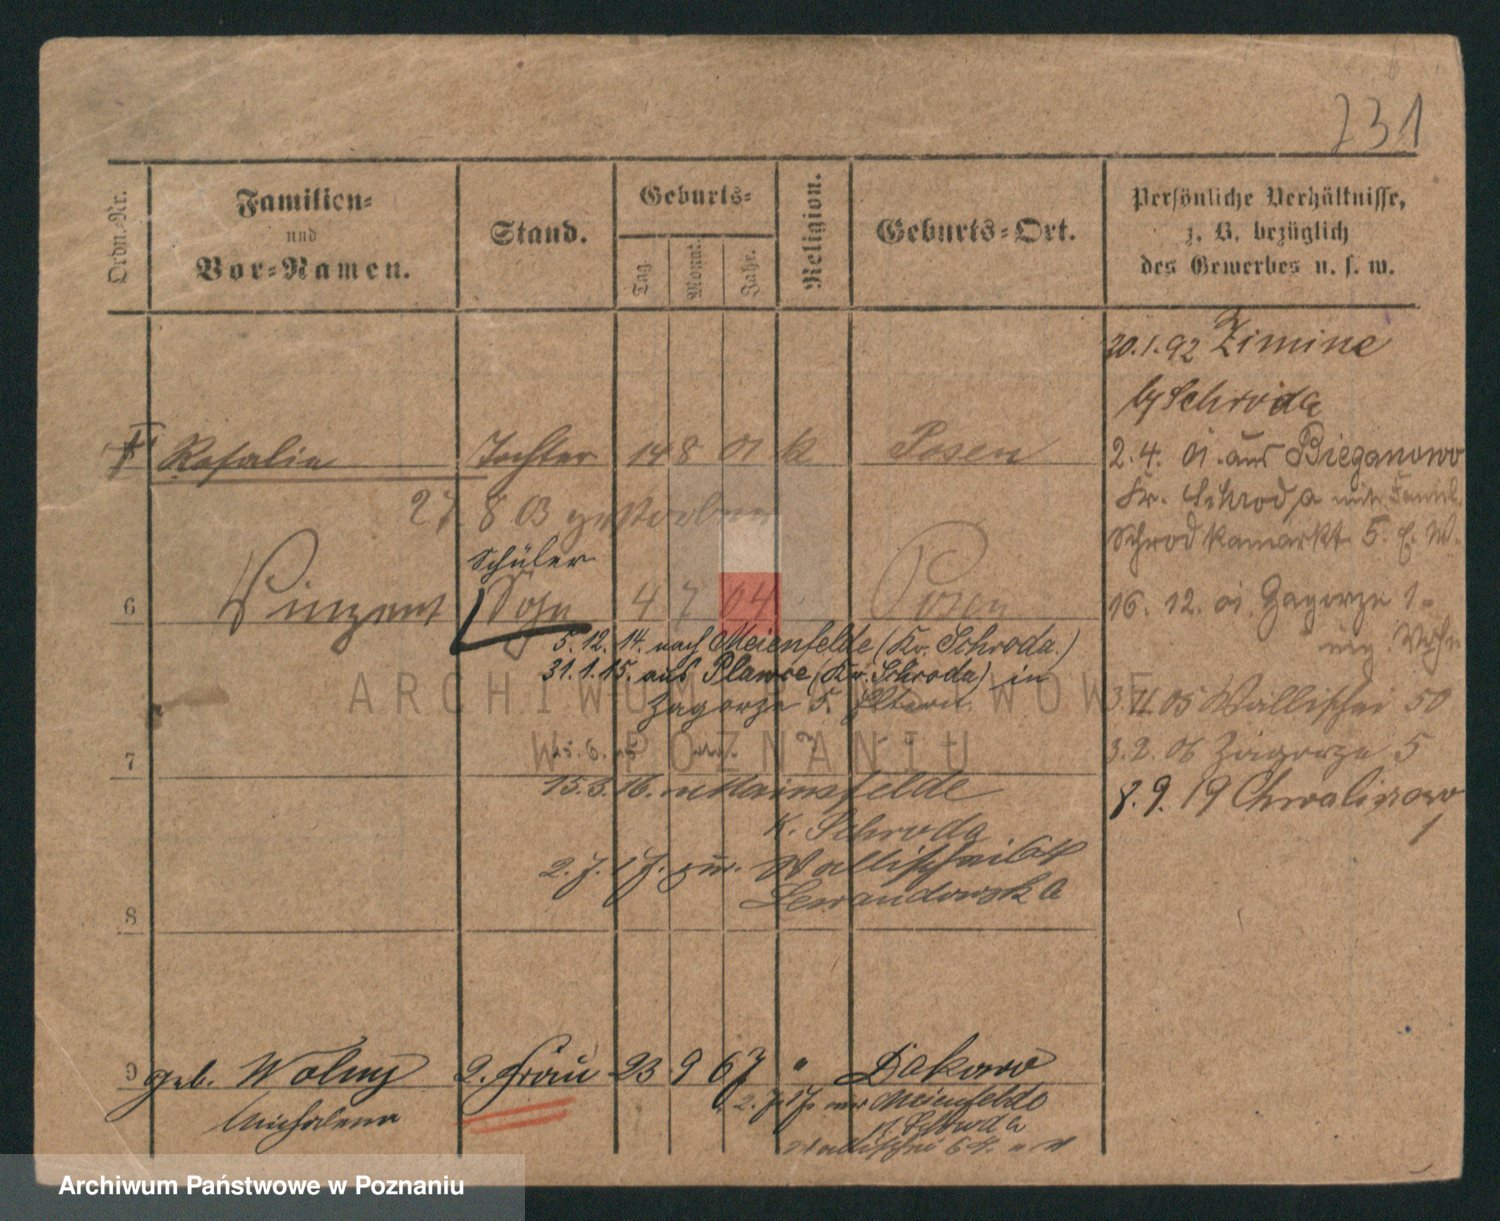 231
Ordn.-Nr.
Familien-
und
Vor-Namen.
Stand.
Geburts-
Tag.
Monat.
Jahr.
Religion.
Geburts-Ort.
Persönliche Verhältnisse,
z. B. bezüglich
des Gewerbes u. s. w.
20.1.92 Zimine
b/ Schroda
Rosalie Tochter 14 8 01 k Posen
2.4. 01. aus Bieganowo
Kr. Schroda mit Famil.
27. 8 03 gestorben
Schrodkamarkt 5. b. W.
Schüler
6 Vinzent Sohn 4 7 04 Posen
16. 12. 01. Zagorze 1.
5.12.14. nach Meienfelde (Kr. Schroda.)
31.1.15. aus Plawce (Kr. Schroda) in
Zagorze 5. Eltern.
3.11 05 Wallischei 50
7
3.2. 06 Zagorze 5
15.3.16. n Mainsfelde
K. Schroda
8.9. 19 Chwalinowo
2.7.17. zur. Wallischei 64
Lewandowska
8
9 geb. Wolny 2. Frau 23 9 67 " Dakowo
Michalena
2.7.17. Meienfelde
K. Schroda
Wallischei 64.
ARCHIWUM PAŃSTWOWE
W POZNANIU
Archiwum Państwowe w Poznaniu